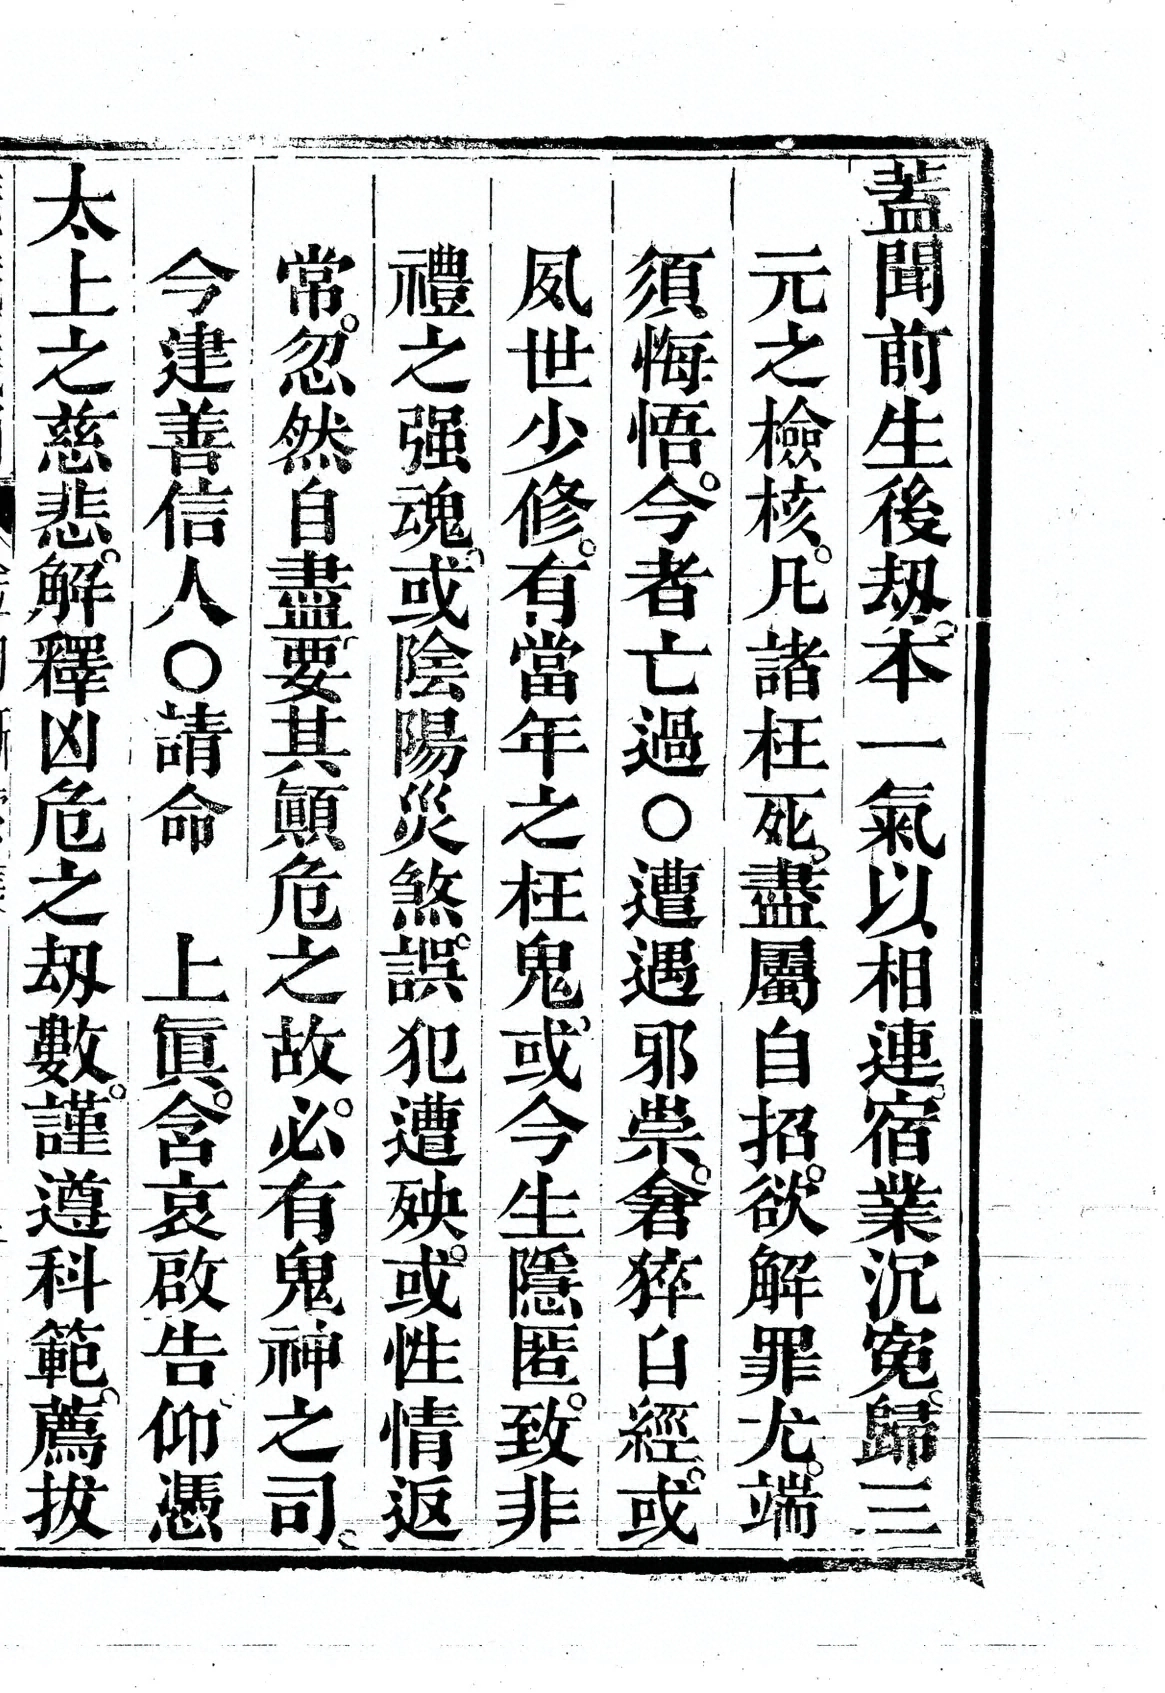 蓋聞前生後刼。本一氣以相連。宿業沉寃。歸三
元之檢核。凡諸枉死。盡屬自招。欲解罪尤。端
須悔悟。今者亡過○遭遇邪祟。倉猝自經。或
夙世少修。有當年之枉鬼。或今生隱匿。致非
禮之强魂。或陰陽災煞。誤犯遭殃。或性情返
常。忽然自盡。要其顛危之故。必有鬼神之司。
今建善信人○請命　上眞。含哀啟告。仰憑
太上之慈悲。解釋凶危之刼數。謹遵科範。薦拔